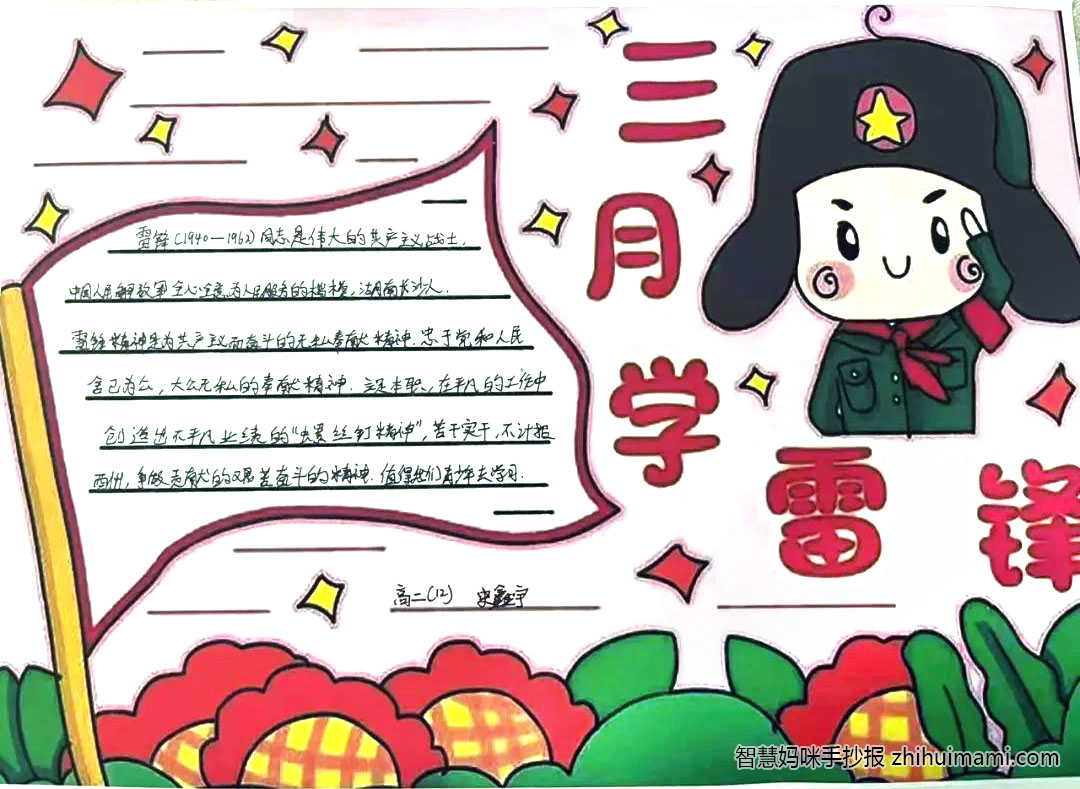 三月学雷锋
雷锋(1940—1962)同志是伟大的共产主义战士.
中国人民解放军全心全意为人民服务的楷模,湖南长沙人.
雷锋精神是为共产主义而奋斗的无私奉献精神.忠于党和人民
舍己为公,大公无私的奉献精神.立足本职,在平凡的工作中
创造出不平凡业绩的“螺丝钉精神”,苦干实干,不计报
西州,争做贡献的艰苦奋斗的精神.值得我们青少年去学习.
高二(12) 宋鑫宇
智慧妈咪手抄报 zhihuimami.com